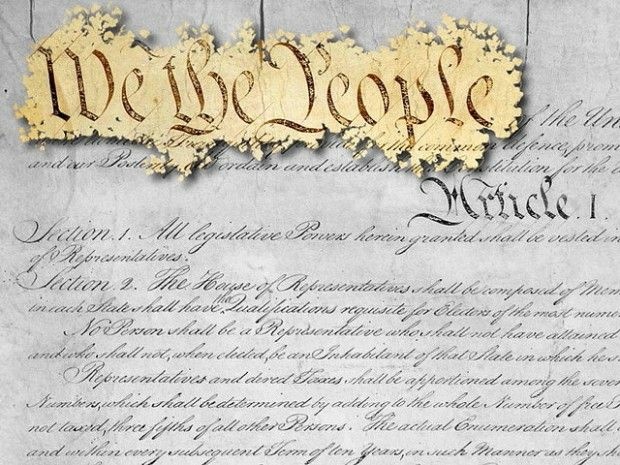 We the People
of the Un
the common defence, prom
and our ordain and establish for the
Article. I.
Section. 1. All legislative Powers herein granted shall be vested in
of Representatives.
Section. 2. The House of Representatives shall be composed of Mem
in each State shall have the Qualifications requisite for Electors of the most numer
No Person shall be a Representative who shall not have attained
and who shall not, when elected, be an Inhabitant of that State in which he s
Representatives and direct Taxes shall be apportioned among the seve
Numbers, which shall be determined by adding to the whole Number of free P
not taxed, three fifths of all other Persons. The actual Enumeration shall
and within every subsequent Term of ten Years, in such Manner as they sh